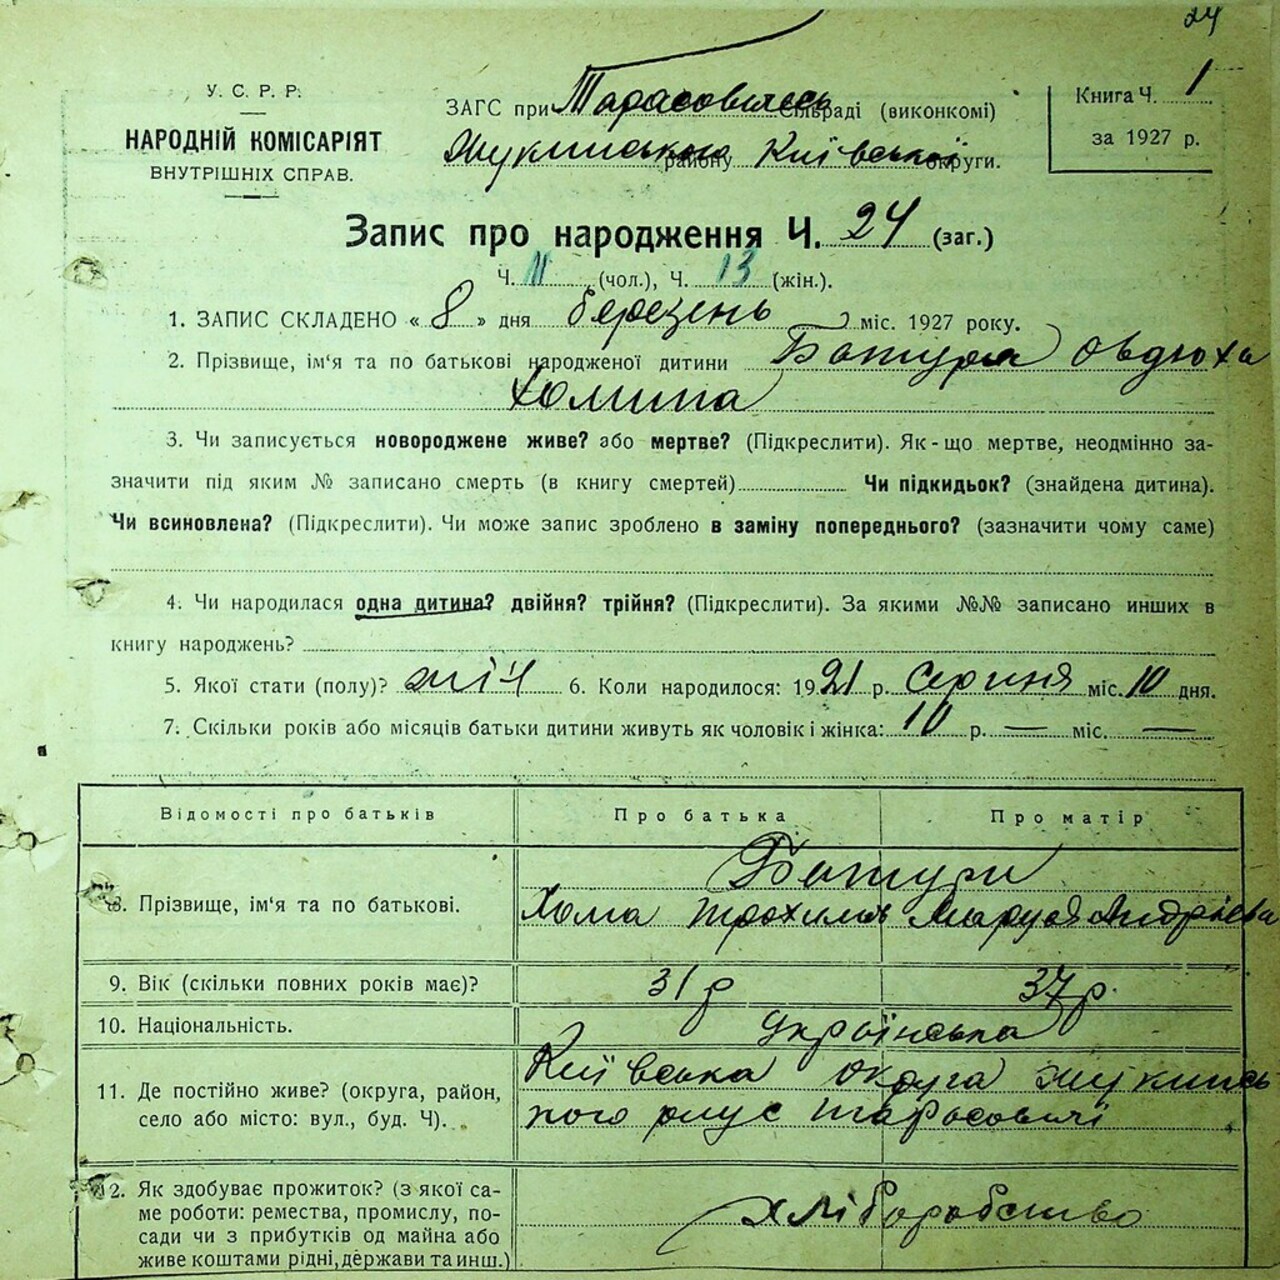 24
У. С. Р. Р.
НАРОДНІЙ КОМІСАРІЯТ
ВНУТРІШНІХ СПРАВ.
ЗАГС при Тарасовицькій сільраді (виконкомі)
Жукинського району Київської округи.
Книга Ч. 1
за 1927 р.
Запис про народження Ч. 24 (заг.)
Ч. 11 (чол.), Ч. 13 (жін.).
1. ЗАПИС СКЛАДЕНО « 8 » дня березень міс. 1927 року.
2. Прізвище, ім'я та по батькові народженої дитини Батура Овдюха
Хомина
3. Чи записується новороджене живе? або мертве? (Підкреслити). Як-що мертве, неодмінно за-
значити під яким № записано смерть (в книгу смертей) Чи підкидьок? (знайдена дитина).
Чи всиновлена? (Підкреслити). Чи може запис зроблено в заміну попереднього? (зазначити чому саме)
4. Чи народилася одна дитина? двійня? трійня? (Підкреслити). За якими №№ записано инших в
книгу народжень?
5. Якої стати (полу)? жіч 6. Коли народилося: 1921 р. серпня міс. 10 дня.
7. Скільки років або місяців батьки дитини живуть як чоловік і жінка: 10 р. — міс. —
Відомості про батьків Про батька Про матір
Батури
8. Прізвище, ім'я та по батькові. Хома Трохимів Маруся Андріева
9. Вік (скільки повних років має)? 31 р 37 р.
10. Національність. Українська
11. Де постійно живе? (округа, район, Київська округа Жукинсь
село або місто: вул., буд. Ч). кого с Тарасовичі
12. Як здобуває прожиток? (з якої са-
ме роботи: ремества, промислу, по- хліборобство
сади чи з прибутків од майна або
живе коштами рідні, держави та инш.)